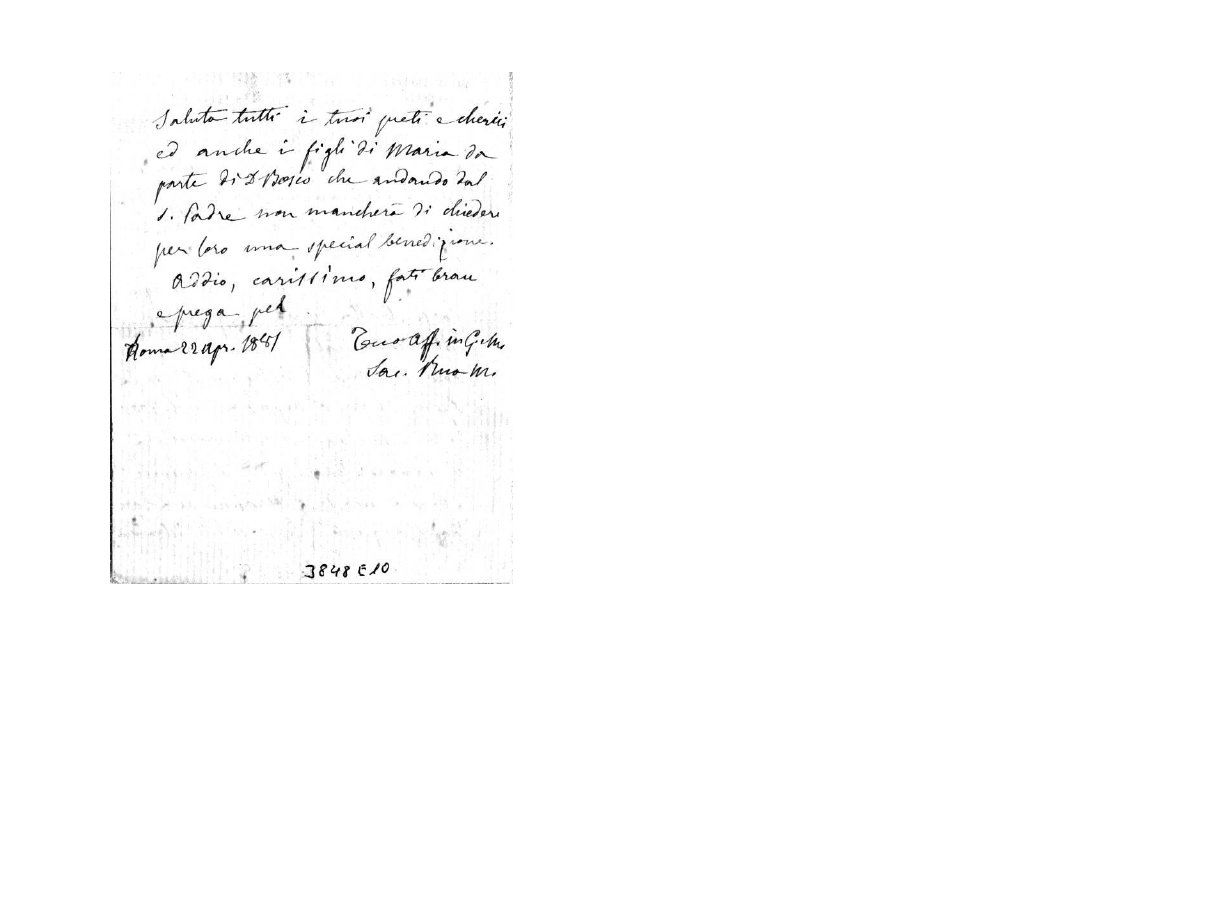 Saluta tutti i tuoi preti e cherici
ed anche i figli di Maria da
parte di D Bosco che andando dal
S. Padre non mancherà di chiedere
per loro una special benedizione.
Addio, carissimo, fati bravo
e prega pel
Roma 22 Apr. 1881
Tuo Aff. in G. M.
Sac. Rua M.
3848 E10